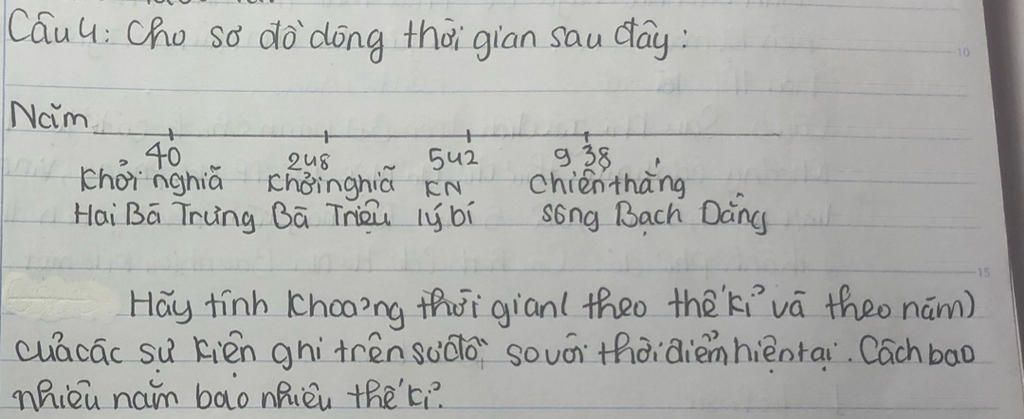 Câu 4: Cho sơ đồ dòng thời gian sau đây:
Năm
40 248 542 938
Khởi nghĩa Khởi nghĩa KN chiến thắng
Hai Bà Trưng Bà Triệu lý bí sông Bạch Đằng
Hãy tính khoảng thời gian( theo thế kỉ và theo năm)
của các sự kiện ghi trên sơ đồ, so với thời điểm hiện tại. Cách bao
nhiêu năm bao nhiêu thế kỉ?